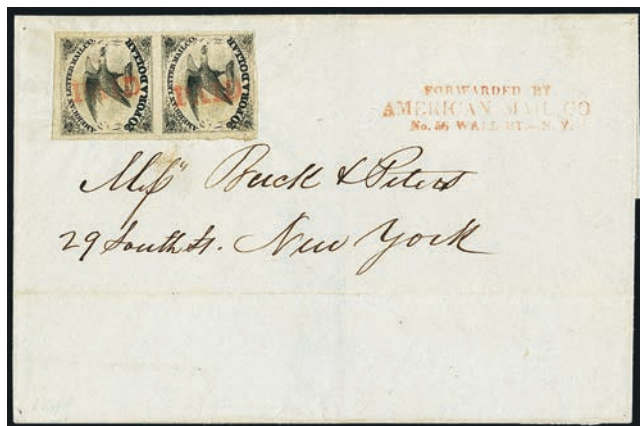 AMERICAN LETTER MAIL CO.
20 FOR A DOLLAR
PAID
AMERICAN LETTER MAIL CO.
20 FOR A DOLLAR
PAID
FORWARDED BY
AMERICAN MAIL CO
No. 56 WALL ST.—N. Y.
Messrs Buck & Peters
29 South St. New York